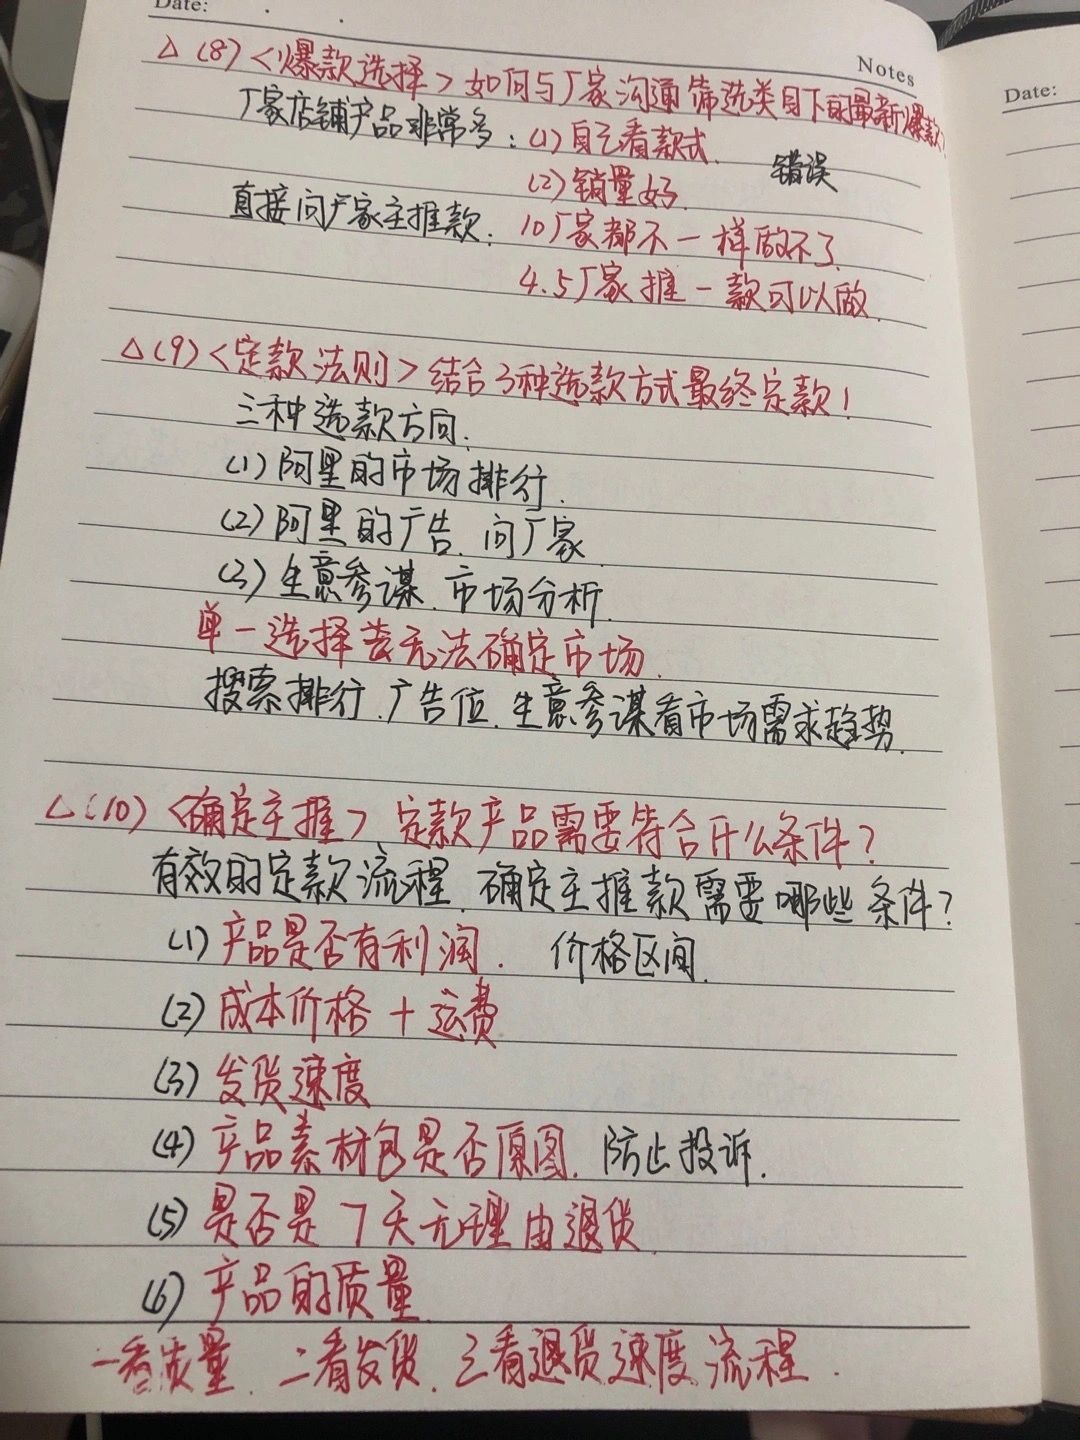 Date:
Notes
Date:
△(8)<爆款选择>如何与厂家沟通筛选类目下的最新爆款?
厂家店铺产品非常多:(1)自己看款式. 错误
(2)销量好.
直接问厂家主推款: 10厂家都不一样做不了.
4.5厂家推一款可以做.
△(9)<定款法则>结合3种选款方式最终定款!
三种选款方向:
(1)阿里的市场排行.
(2)阿里的广告.问厂家
(3)生意参谋.市场分析.
单一选择去无法确定市场.
搜索排行.广告位.生意参谋看市场需求趋势.
△(10)<确定主推>定款产品需要符合什么条件?
有效的定款流程.确定主推款需要哪些条件?
(1)产品是否有利润. 价格区间.
(2)成本价格+运费.
(3)发货速度
(4)产品素材包是否原图.防止投诉.
(5)是否是7天无理由退货.
(6)产品的质量.
一看质量.二看发货.三看退货速度流程.